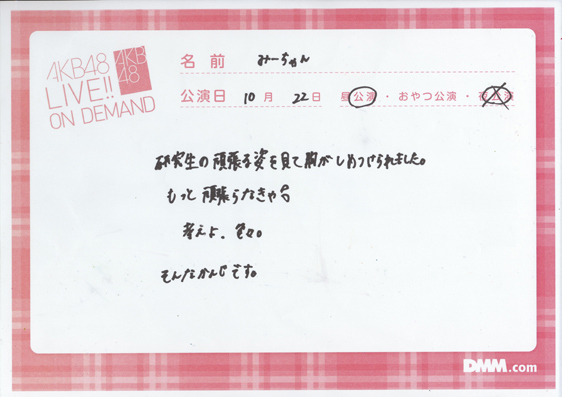 AKB48
LIVE!!
ON DEMAND
AKB
48
名前 みーちゃん
公演日 10月 22日 昼公演・おやつ公演・夜公演
研究生の頑張る姿を見て胸がしめつけられました。
もっと頑張らなきゃな
考えよ。色々。
そんなかんじです。
DMM.com